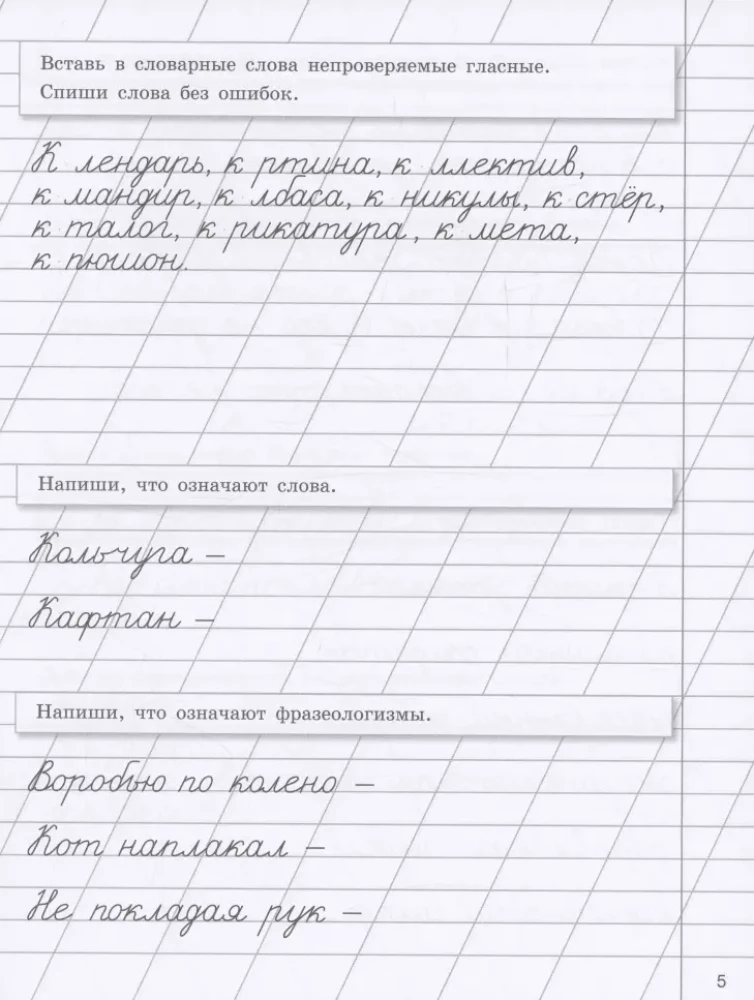 Вставь в словарные слова непроверяемые гласные.
Спиши слова без ошибок.
К лендарь, к ртина, к ллектив,
к мандир, к лбаса, к никулы, к стёр,
к талог, к рикатура, к мета,
к пюшон.
Напиши, что означают слова.
Кольчуга –
Кафтан –
Напиши, что означают фразеологизмы.
Воробью по колено –
Кот наплакал –
Не покладая рук –
5